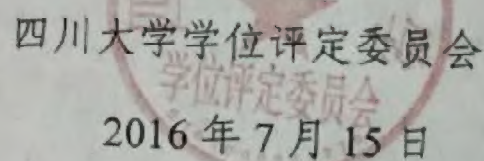 四川大学学位评定委员会
学位评定委员会
2016 年 7 月 15 日